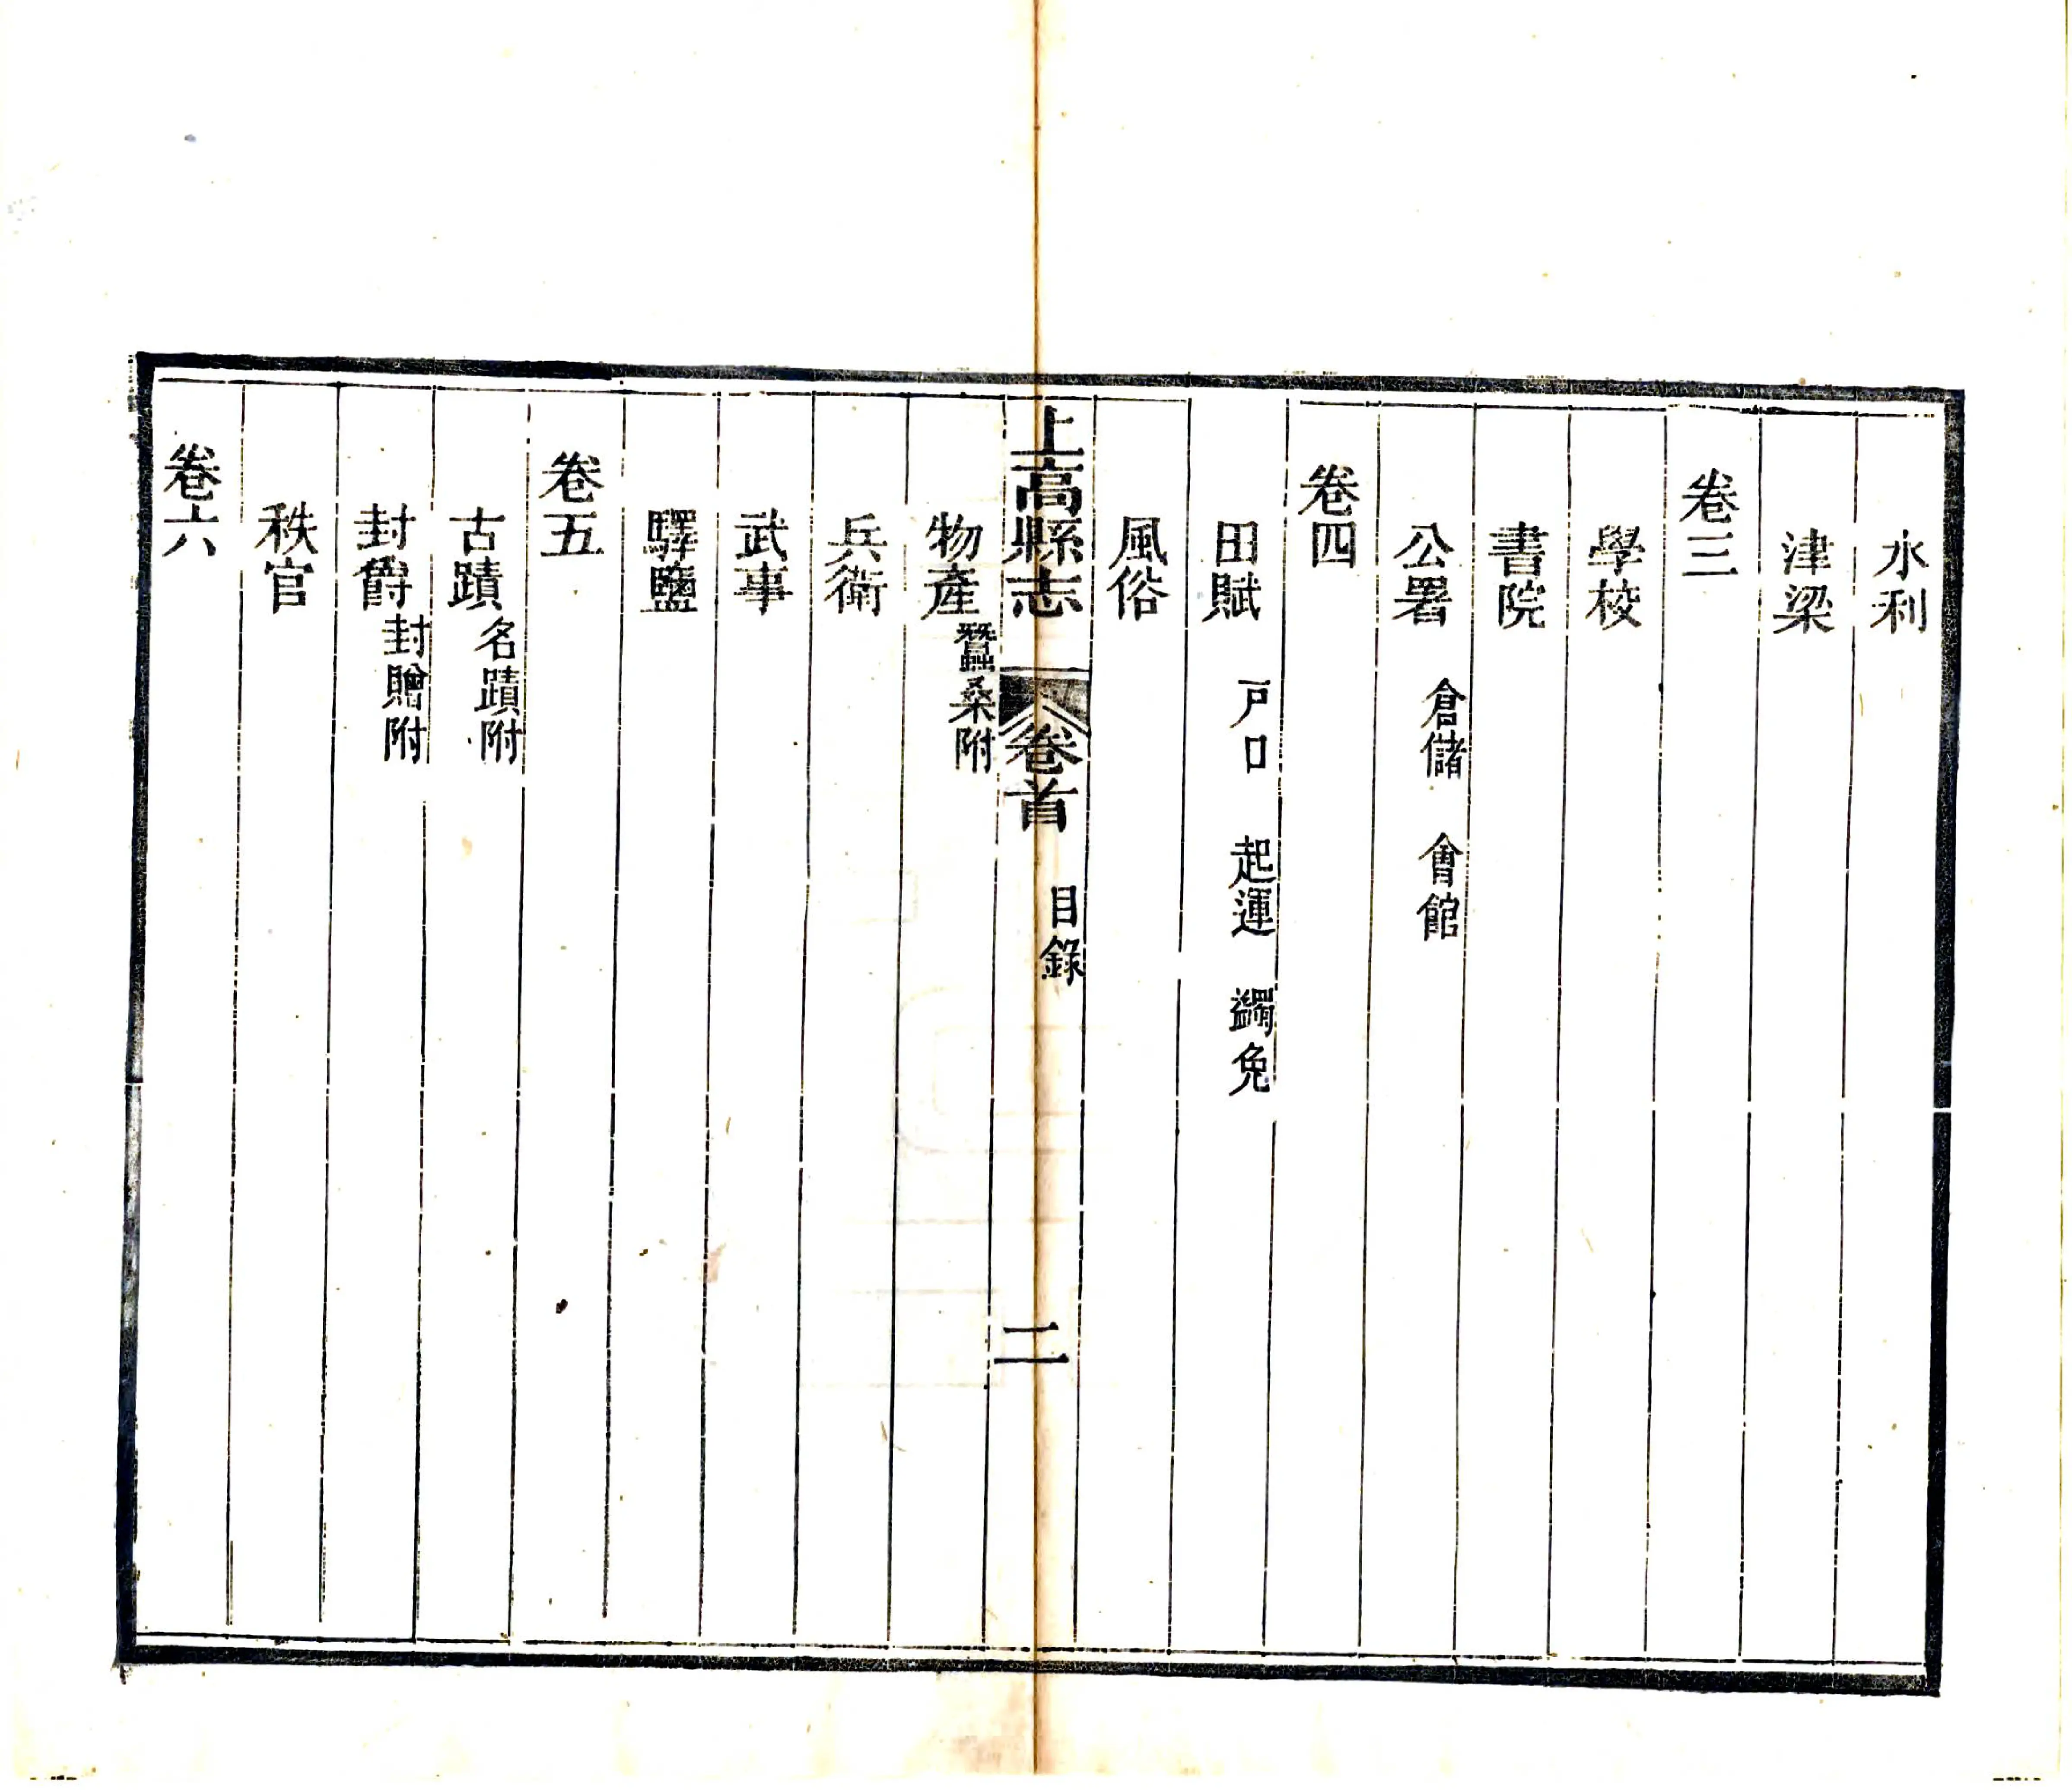 水利
津梁
卷三
學校
書院
公署 倉儲 會館
卷四
田賦 戸口 起運 蠲免
風俗
上高縣志 卷首 目錄 二
物產 蠶桑附
兵衛
武事
驛鹽
卷五
古蹟 名蹟附
封爵 封贈附
秩官
卷六